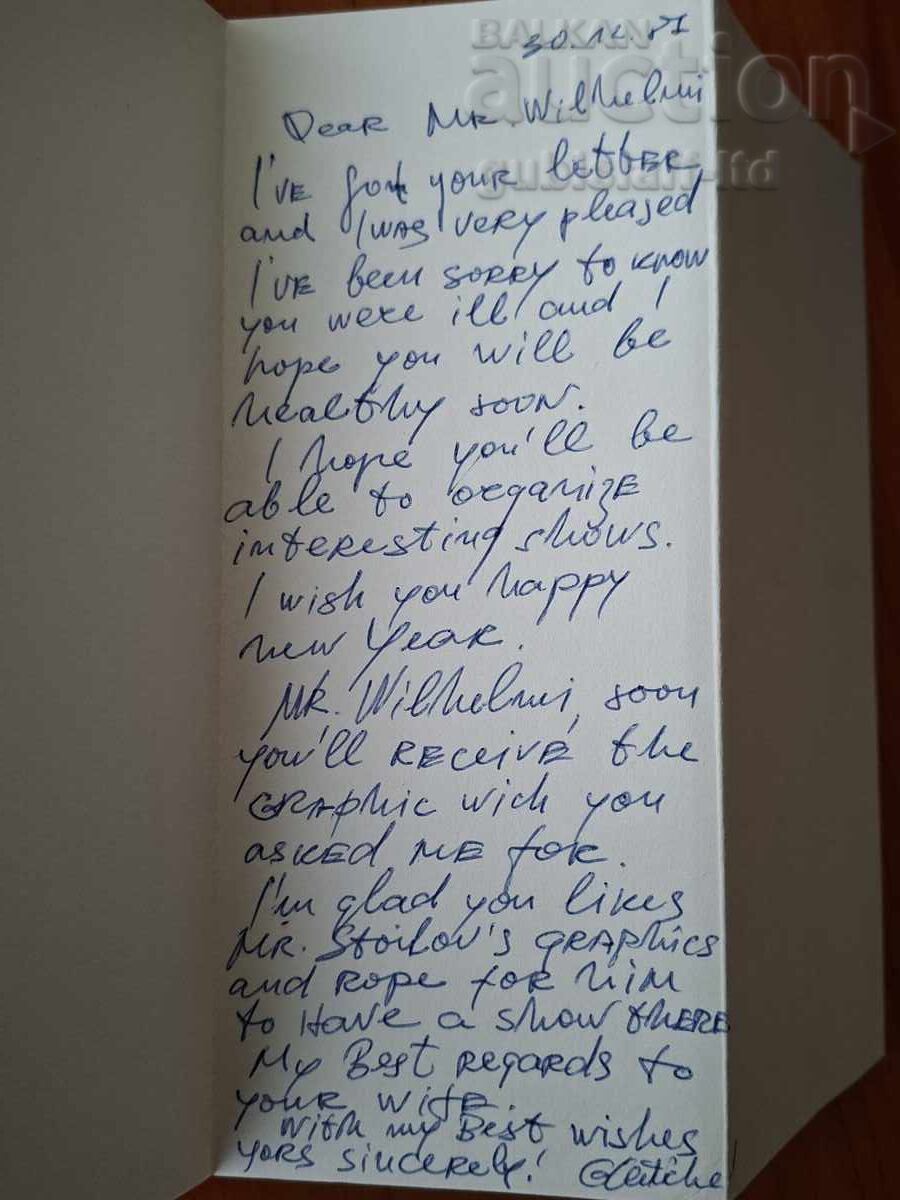 30.12.87
Dear Mr. Wilhelmi
I've got your letter
and I was very pleased
I've been sorry to know
you were ill and I
hope you will be
healthy soon.
I hope you'll be
able to organize
interesting shows.
I wish you happy
new Year.
Mr. Wilhelmi, soon
you'll receive the
graphic wich you
asked me for.
I'm glad you likes
Mr. Stoilov's graphics
and rope for him
to have a show there
My Best regards to
your wife.
With my Best wishes
yors sincerely!
BALKAN
auction
gubiolani-ltd